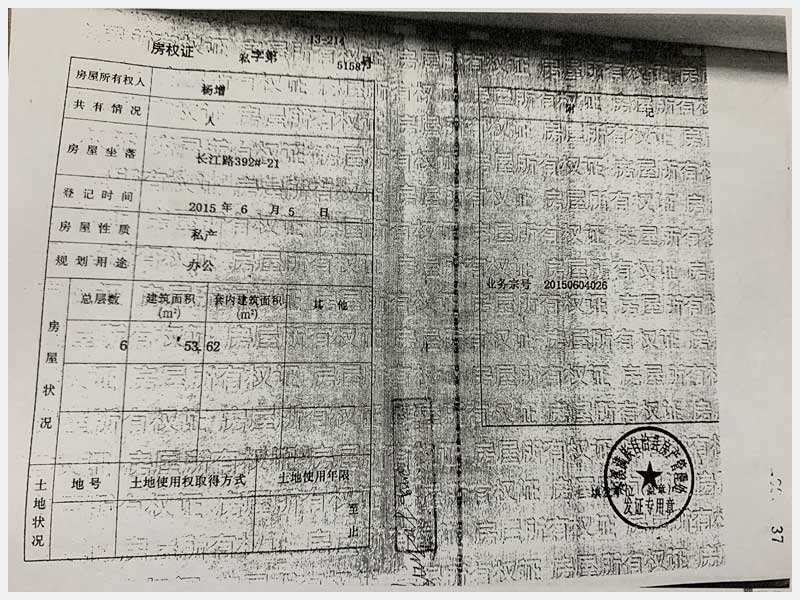 13-214
房权证 私字第 51587 号
房屋所有权人 杨增
共有情况 人
房屋坐落 长江路392#-21
登记时间 2015 年 6 月 5 日
房屋性质 私产
规划用途 办公
房屋状况
总层数 建筑面积(m²) 套内建筑面积(m²) 其他
6 53.62
土地状况
地号 土地使用权取得方式 土地使用年限
至
止
附 记
业务宗号 20150604026
填发单位(盖章)
发证专用章
37